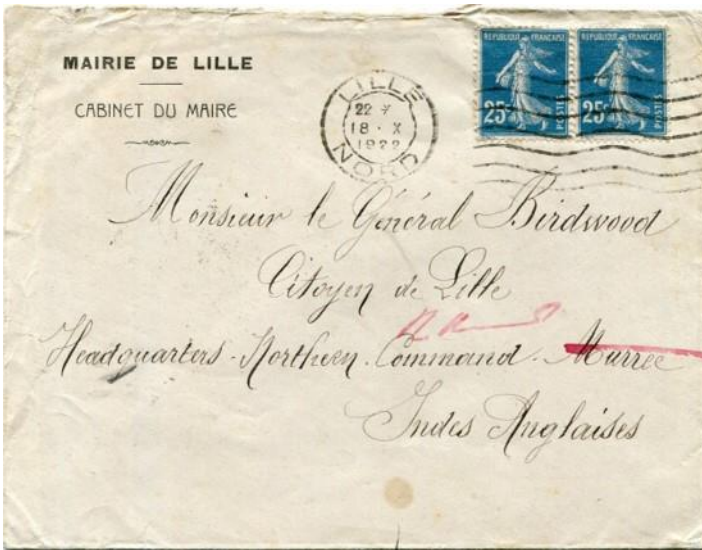 MAIRIE DE LILLE
CABINET DU MAIRE
LILLE
22
18 · X
1922
NORD
REPUBLIQUE FRANÇAISE
25c
POSTES
REPUBLIQUE FRANÇAISE
25c
POSTES
Monsieur le Général Birdwood
Citoyen de Lille
Headquarters - Northern - Command - Murree
Indes Anglaises